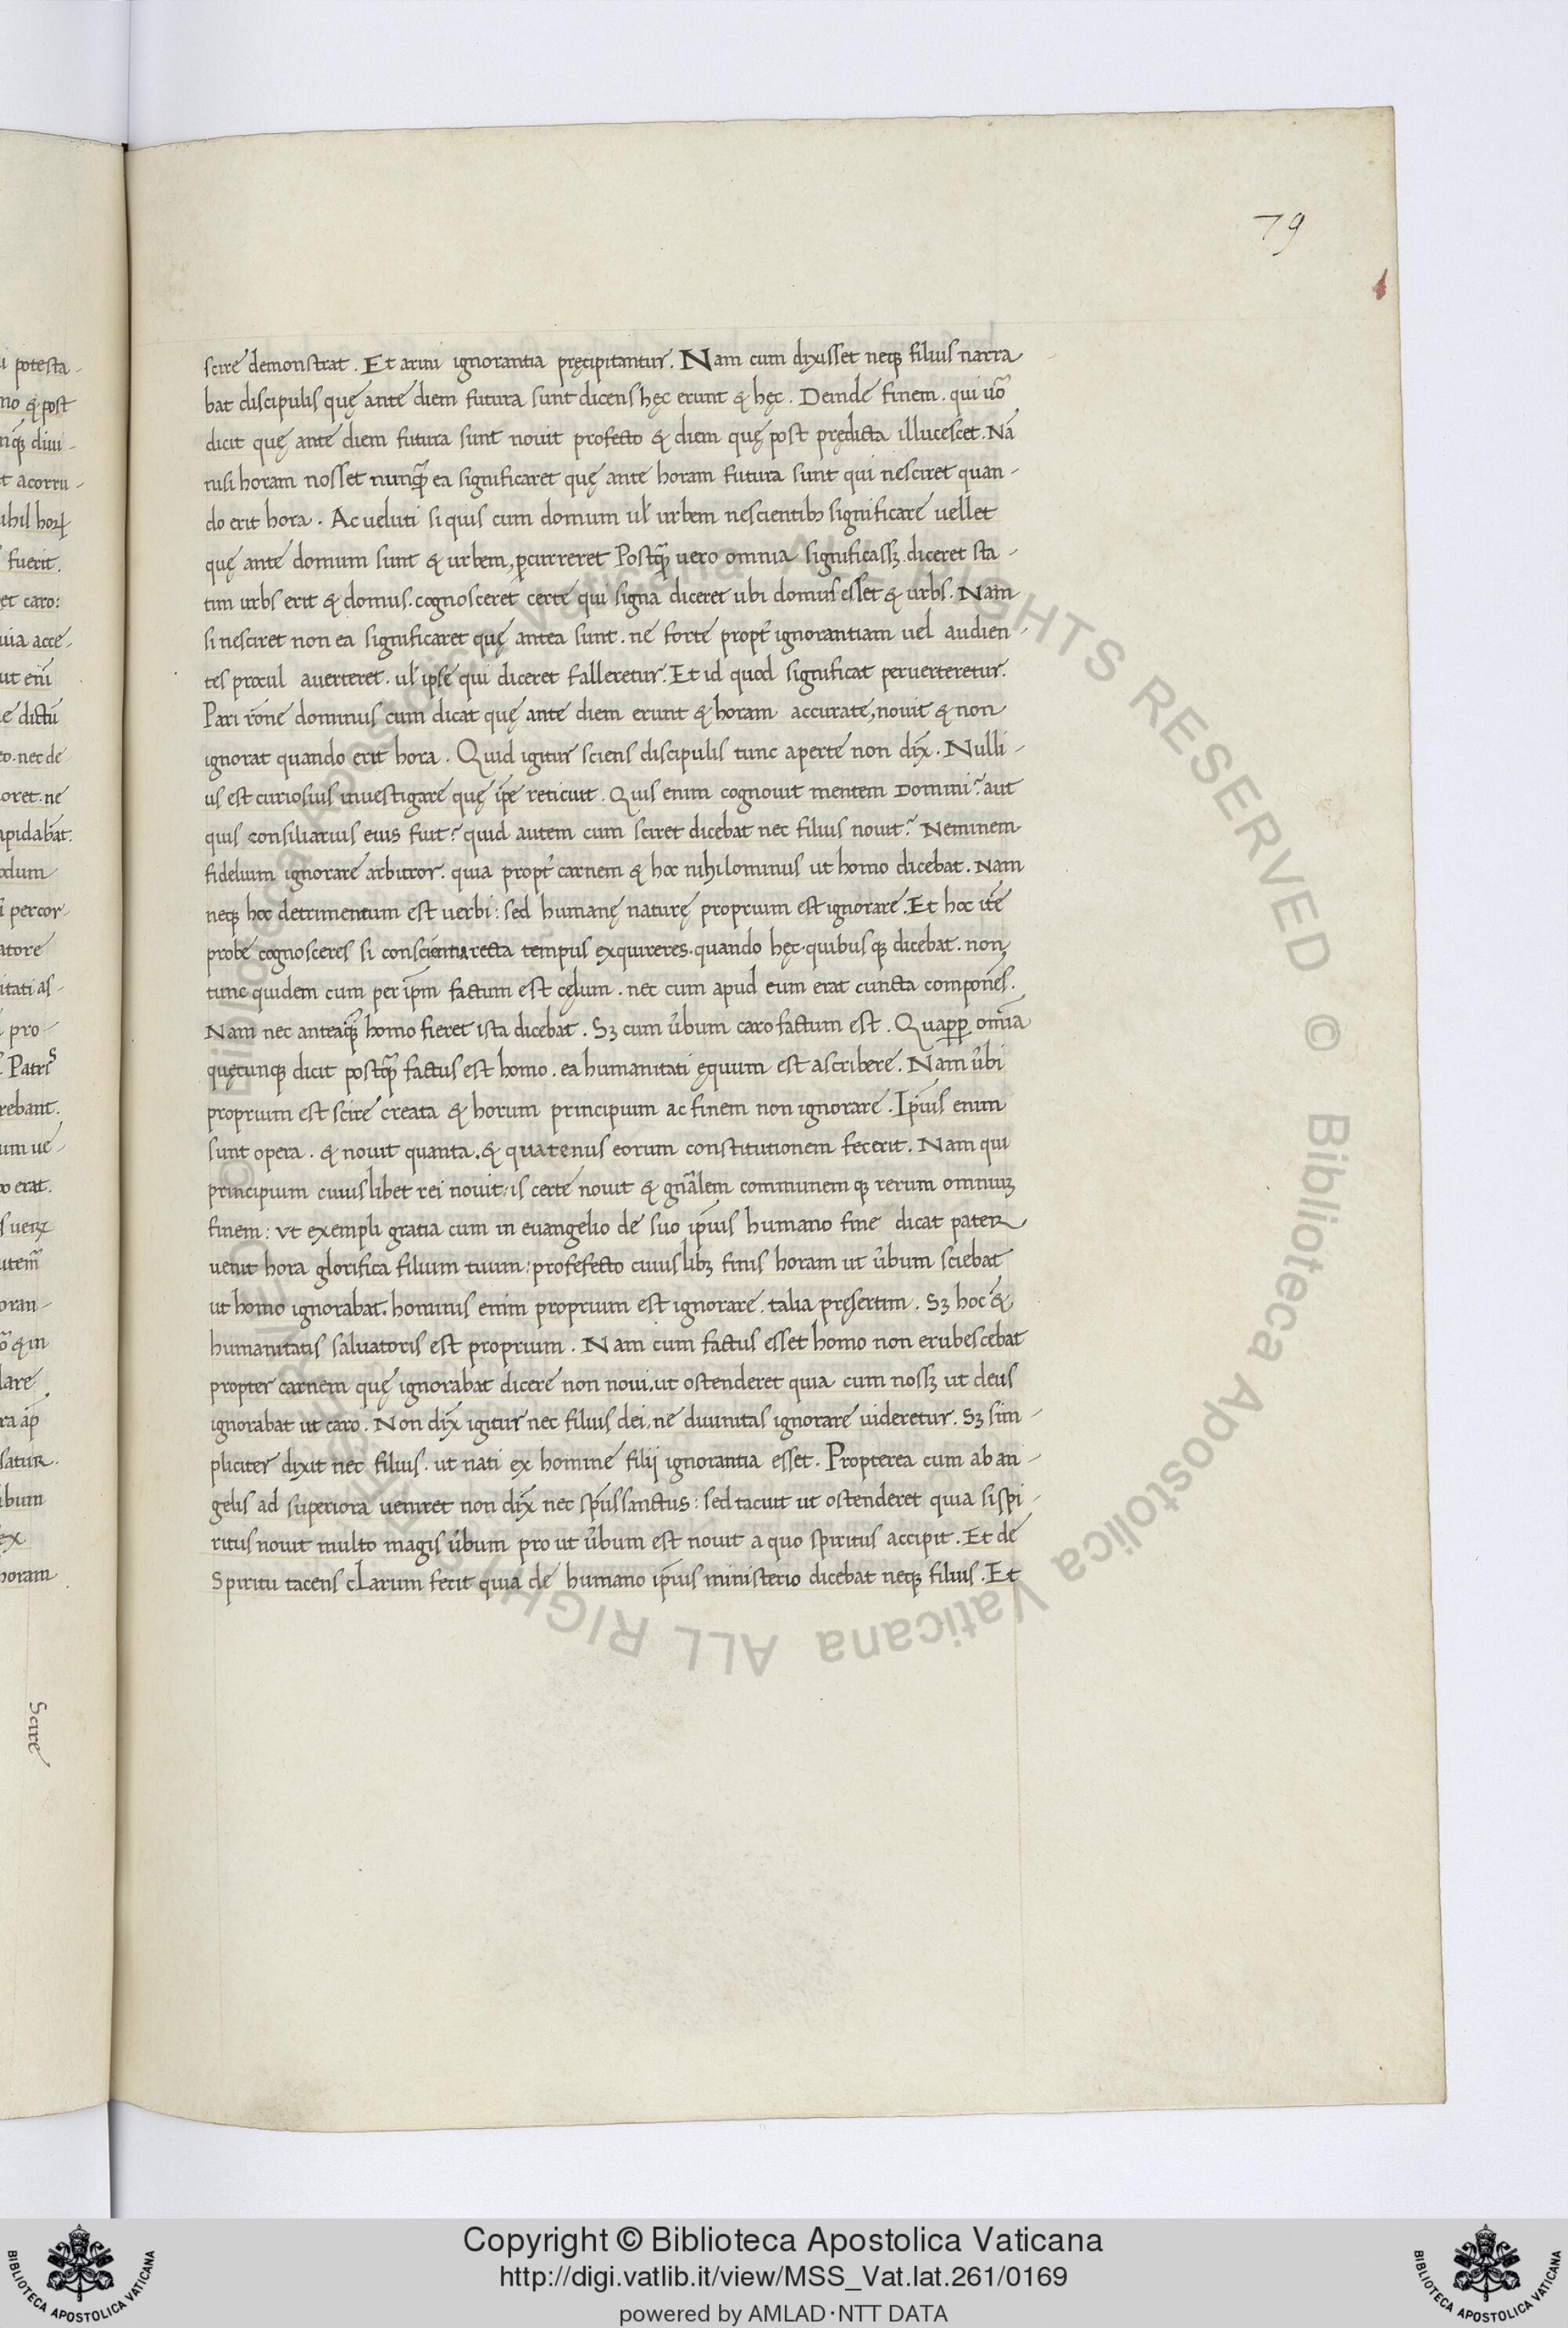 79
scire demonstrat. Et arini ignorantia pręcipitantur. Nam cum dixisset neqꝫ filius narra
bat discipulis quę ante diem futura sunt dicens hęc erunt & hęc. Deinde finem. qui uo᷈
dicit quę ante diem futura sunt nouit profecto & diem quę post prędicta illucescet. Nā
nisi horam nosset nunq̄ꝫ ea significaret quę ante horam futura sunt qui nesciret quan-
do erit hora. Ac ueluti si quis cum domum ul̛ urbem nescientibꝫ significare uellet
quę ante domum sunt & urbem, ꝑcurreret Postq̄ꝫ uero omnia significassꝫ diceret sta-
tim urbs erit & domus. cognosceret certe qui signa diceret ubi domus esset & urbs. Nam
si nesciret non ea significaret quę antea sunt. ne forte propt̛ ignorantiam uel audien-
tes procul auerteret. ul̛ ipse qui diceret falleretur. Et id quod significat peruerteretur.
Pari rōne dominus cum dicat quę ante diem erunt & horam accurate, nouit & non
ignorat quando erit hora. Quid igitur sciens discipulis tunc aperte non dix̄. Nulli-
us est curiosius inuestigare quę ip̄e reticuit. Quis enim cognouit mentem Domini? aut
quis consiliarius eius fuit? quid autem cum sciret dicebat nec filius nouit? Neminem
fidelium ignorare arbitror. quia propt̛ carnem & hoc nihilominus ut homo dicebat. Nam
neqꝫ hoc detrimentum est uerbi: sed humanę naturę proprium est ignorare. Et hoc itē
probe cognosceres si conscientia recta tempus exquireres. quando hęc. quibusqꝫ dicebat. non
tunc quidem cum per ip̄m factum est cęlum. nec cum apud eum erat cuncta componēs.
Nam nec anteaq̄ꝫ homo fieret ista dicebat. Sꝫ cum ưbum caro factum est. Quaꝓꝑ omīa
quęcunqꝫ dicit postq̄ꝫ factus est homo. ea humanitati ęquum est ascribere. Nam ưbi
proprium est scire creata & horum principium ac finem non ignorare. Ip̄ius enim
sunt opera. & nouit quanta. & quatenus eorum constitutionem fecerit. Nam qui
principium cuiuslibet rei nouit: is certe nouit & gn̄alem communemqꝫ rerum omniuꝫ
finem: ut exempli gratia cum in euangelio de suo ip̄ius humano fine dicat pater
uenit hora glorifica filium tuum: profefecto cuiuslibꝫ finis horam ut ưbum sciebat
ut homo ignorabat. hominis enim proprium est ignorare. talia pręsertim. Sꝫ hoc &
humanitatis saluatoris est proprium. Nam cum factus esset homo non erubescebat
propter carnem quę ignorabat dicere non noui. ut ostenderet quia cum nossꝫ ut deus
ignorabat ut caro. Non dix̄ igitur nec filius dei. ne diuinitas ignorare uideretur. Sꝫ sim-
pliciter dixit nec filius. ut nati ex homine filij ignorantia esset. Propterea cum ab an-
gelis ad superiora ueniret non dix̄ nec sp̄us sanctus: sed tacuit ut ostenderet quia si spi-
ritus nouit multo magis ưbum pro ut ưbum est nouit a quo spiritus accipit. Et de
Spiritu tacens clarum fecit quia de humano ip̄ius ministerio dicebat neqꝫ filius. Et
Scire
Copyright © Biblioteca Apostolica Vaticana
http://digi.vatlib.it/view/MSS_Vat.lat.261/0169
powered by AMLAD·NTT DATA